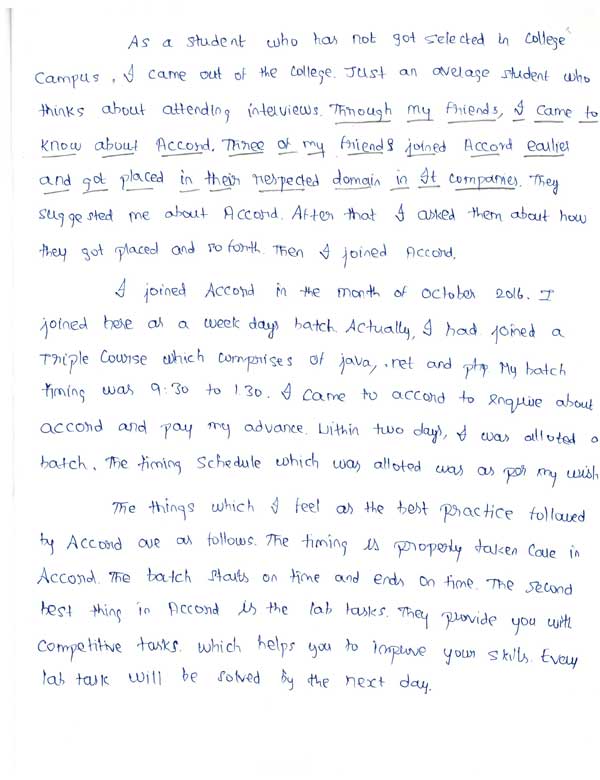 As a student who has not got selected in college
Campus, I came out of the college. Just an average student who
thinks about attending interviews. Through my friends, I came to
know about Accord. Three of my friends joined Accord earlier
and got placed in their respected domain in It companies. They
suggested me about Accord. After that I asked them about how
they got placed and so forth. Then I joined Accord.
I joined Accord in the month of October 2016. I
joined here as a week days batch. Actually, I had joined a
Triple Course which comprises of java, .net and php My batch
timing was 9:30 to 1.30. I came to accord to enquire about
accord and pay my advance. Within two days, I was alloted a
batch. The timing schedule which was alloted was as per my wish
The things which I feel as the best practice followed
by Accord are as follows. The timing is properly taken care in
Accord. The batch starts on time and ends on time. The second
best thing in Accord is the lab tasks. They provide you with
competitive tasks. which helps you to improve your skills. Every
lab task will be solved by the next day.